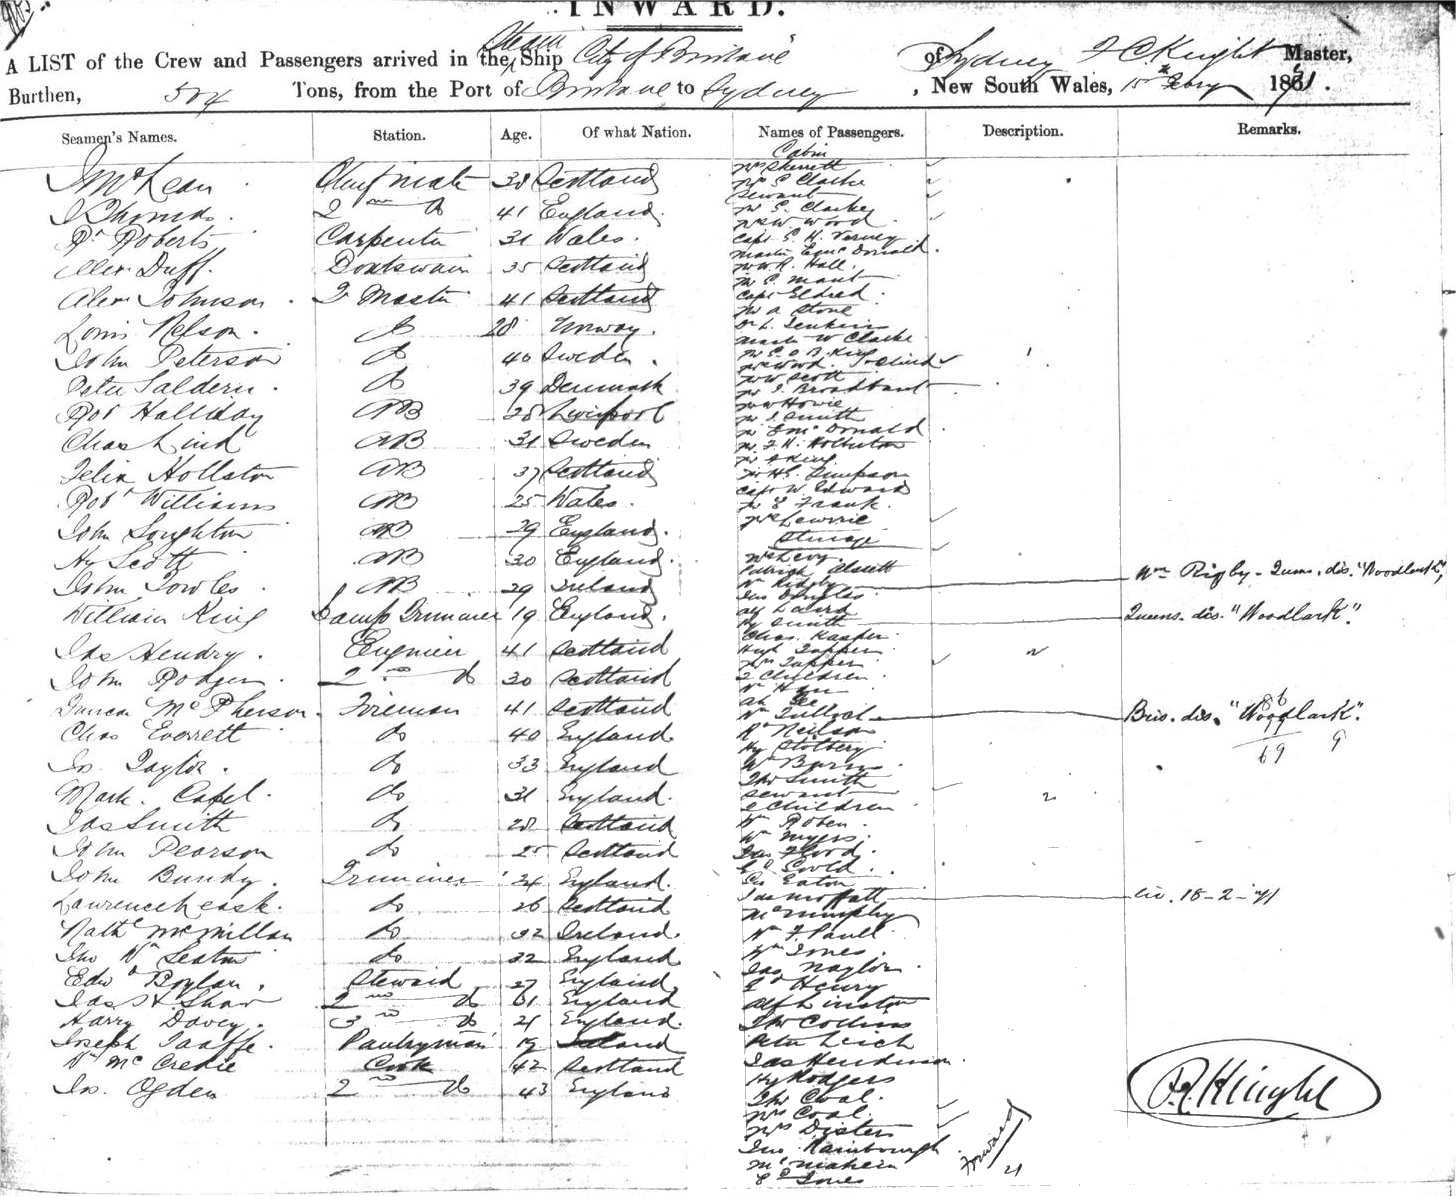 INWARD.
A LIST of the Crew and Passengers arrived in the Steam Ship City of Brisbane of Sydney Knight Master,
Burthen, 504 Tons, from the Port of Brisbane to Sydney, New South Wales, 15th Febry 1871.
Seamen's Names. Station. Age. Of what Nation. Names of Passengers. Description. Remarks.
Cabin
McLean Chief mate 38 Scotland
J Thomas 2nd Do 41 England
Rt Roberts Carpenter 31 Wales.
Alex Duff. Boatswain 35 Scotland
Alex Johnson Qr Master 41 Scotland
Louis Nelson. Do 28 Norway.
John Peterson Do 40 Sweden.
Peter Saldern. Do 39 Denmark
Robt Halliday AB 28 Liverpool
Chas Lind AB 31 Sweden
Felix Hollston AB 37 Scotland
Robt Williams AB 25 Wales.
John Soughton AB 29 England.
Hy Scott AB 30 England.
John Towles AB 29 Ireland
William King Lamp Trimmer 19 England.
Jas Hendry. Engineer 41 Scotland
John Rodger 2nd Do 30 Scotland
Duncan McPherson. Fireman 41 Scotland
Chas Everett do 40 England.
Jn. Taylor. do 33 England
Mark. Capel. do 31 England.
Jas Smith do 28 Scotland
John Pearson do 25 Scotland
John Bundy. Trimmer 24 England.
Lawrence Leask. do 26 Scotland
Nathl McMillan do 32 Ireland.
Jno Wm Seaton do 22 England
Edwd Boylan. Steward 27 England
Jas H Shaw 2nd do 61 England
Harry Davey. 3rd do 21 England.
Joseph Taaffe. Pantryman 19 Ireland
Wm McCredie Cook 42 Scotland
Jn. Ogden 2nd do 43 England
Mrs Skerrett
Mrs S Clarke
Servant
Mr S. Clarke
Mrs W Wood
Capt S. H. Verney
Master E McDonald.
Mr W. R. Hall.
Mr S. Mant
Capt Eldred.
Mr A Stone
Dr L. Jenkins
Master W Clarke
Mr E O B King
Mr W Scott
Mr J Broadbent
Mr W Howie
Mr J Smith
Mr E McDonald
Mr F H. Holberton
Mr A King
Mr H E. Simpson
Capt W Edwards
Mr E Frank.
Mrs Lewrie
Steerage
Mrs Levy.
Patrick
Wm Rigby Wm Rigby - Qums. dis. "Woodlark",
Jno Douglas
Alf Laird
Hy Smith Queens. dis. "Woodlark".
Chas. Kasper.
Hugh Tapper
Mrs Tapper
2 Children 2
Wm Ham
Ah Gee
Wm Tulloch Bris. dis. "Woodlark".
Rt Neilson
Hy Stolbery
Wm Burns
Thos Smith
Servant
2 Children 2
Wm Roben.
Wm Myers.
Jas Flood.
Gd Gould.
Geo Eaton
Jas Moffatt civ. 18-2-71
McMurphy
Wm F Paull
Wm Jones.
Jas Naylor.
Ed Henry
Alf Linston
Thos Collins
Peter Leich
Jas Henderson
Hy Rodgers
Thos Coal.
Mrs Coal.
Mrs Disten
Jno Rainbourgh
McMahern
E Jones
86
69 9
Forward 21
Knight